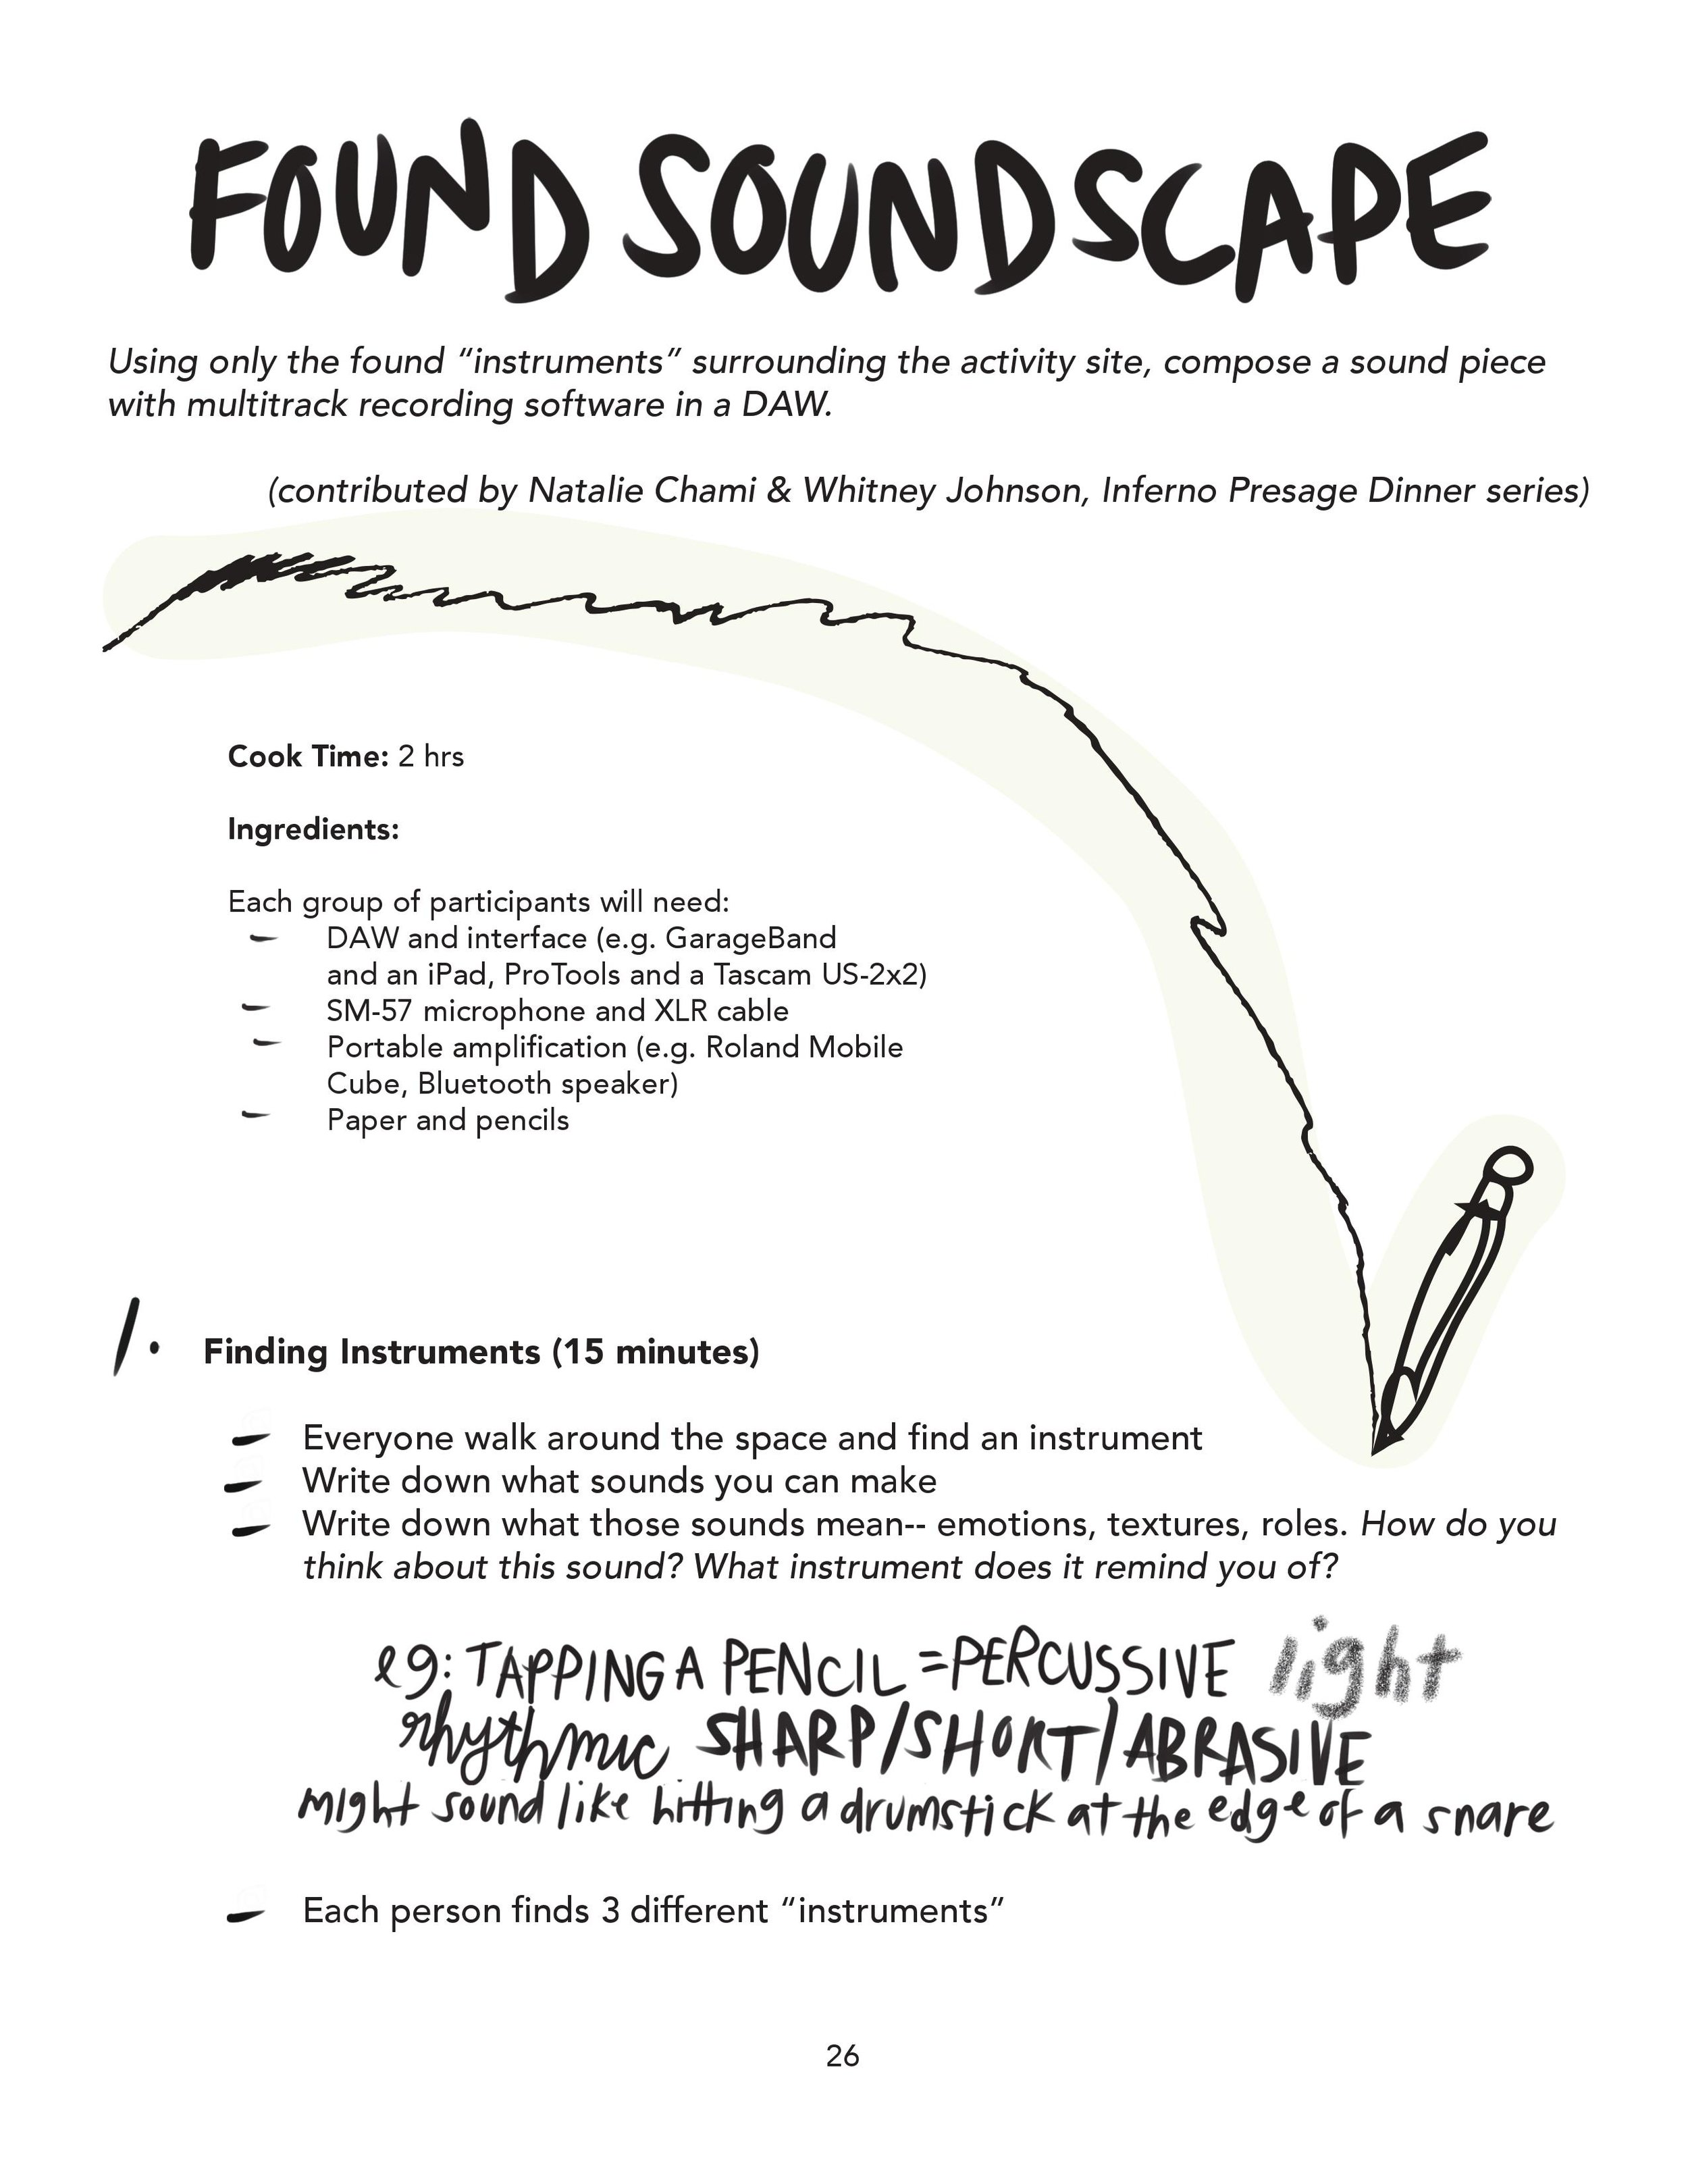 FOUND SOUNDSCAPE
Using only the found “instruments” surrounding the activity site, compose a sound piece
with multitrack recording software in a DAW.
(contributed by Natalie Chami & Whitney Johnson, Inferno Presage Dinner series)
Cook Time: 2 hrs
Ingredients:
Each group of participants will need:
- DAW and interface (e.g. GarageBand
and an iPad, ProTools and a Tascam US-2x2)
- SM-57 microphone and XLR cable
- Portable amplification (e.g. Roland Mobile
Cube, Bluetooth speaker)
- Paper and pencils
1. Finding Instruments (15 minutes)
- Everyone walk around the space and find an instrument
- Write down what sounds you can make
- Write down what those sounds mean-- emotions, textures, roles. How do you
think about this sound? What instrument does it remind you of?
eg: TAPPING A PENCIL = PERCUSSIVE light
rhythmic SHARP/SHORT/ABRASIVE
might sound like hitting a drumstick at the edge of a snare
- Each person finds 3 different “instruments”
26